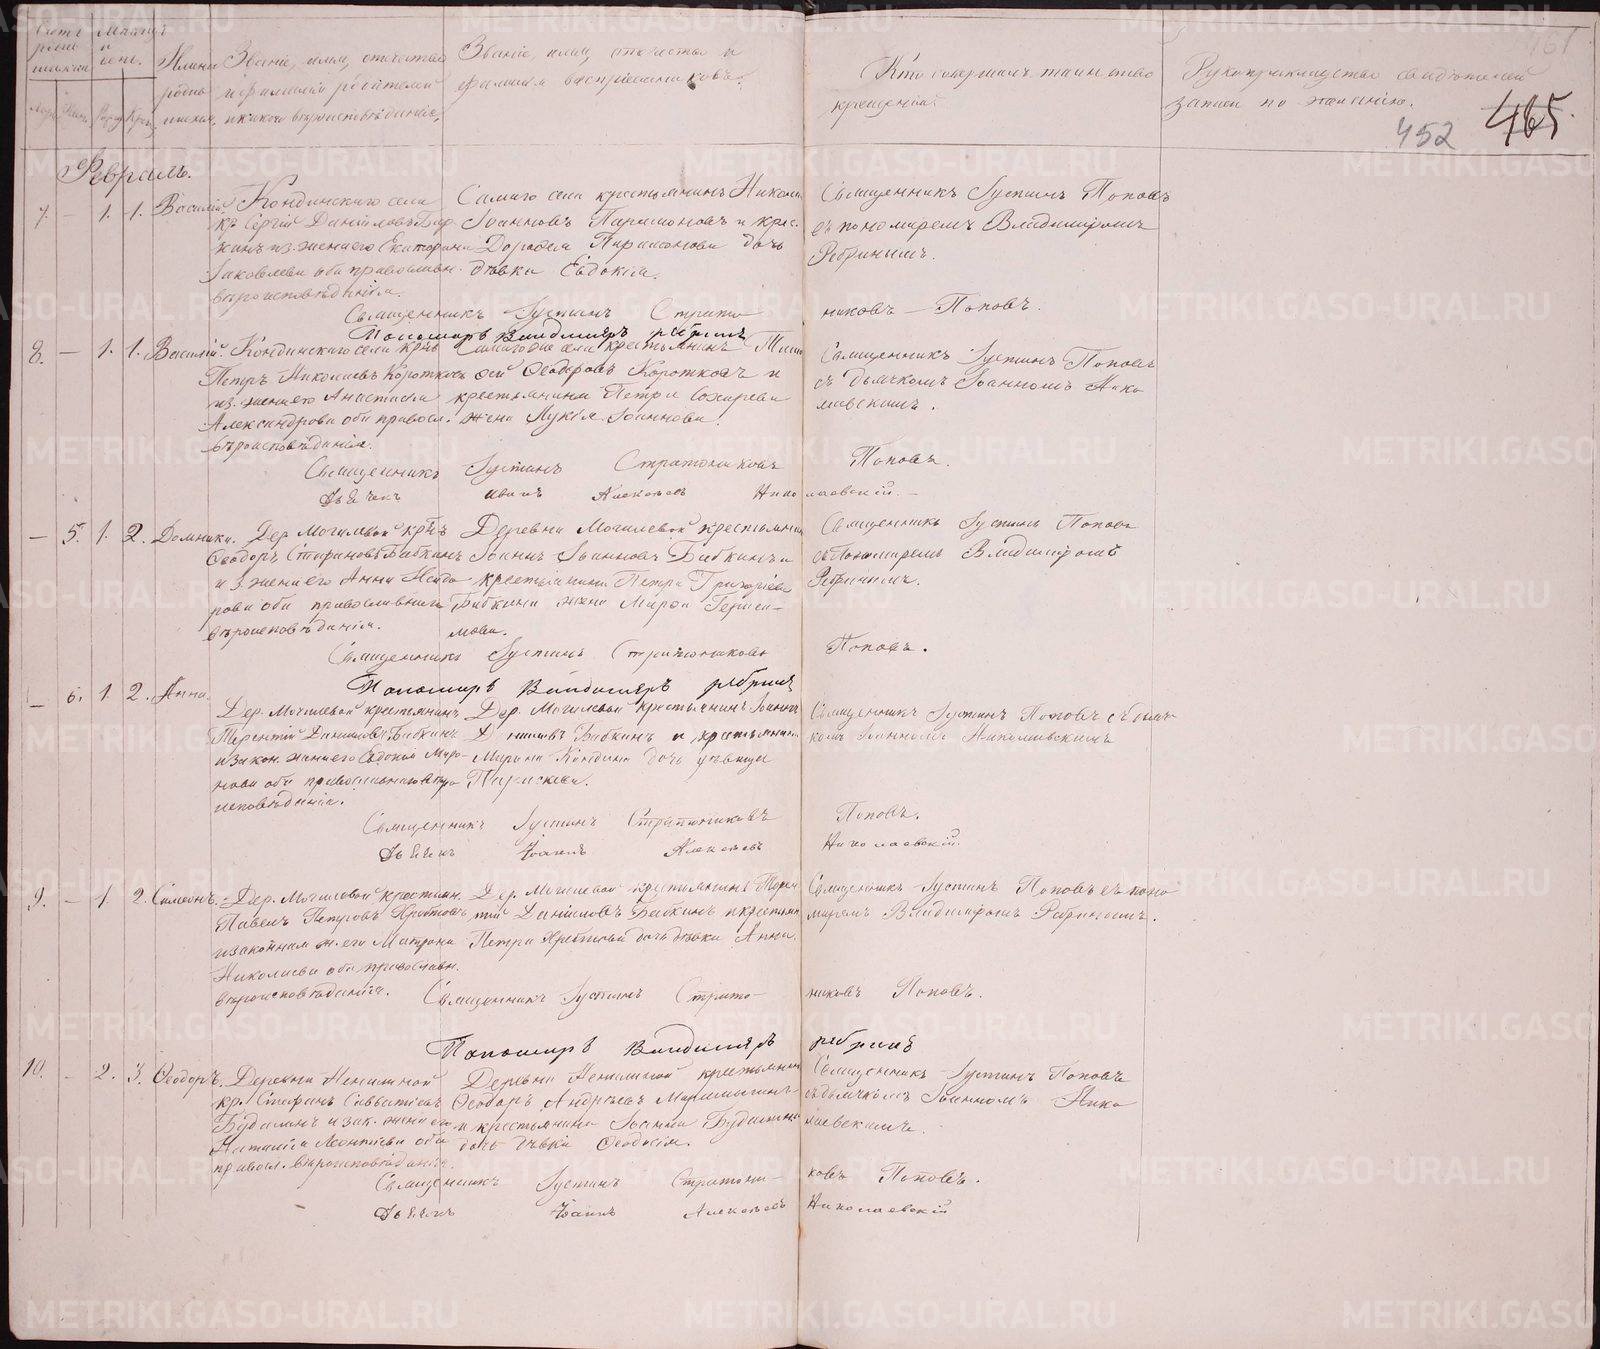 Счетъ родившихся
Мѣсяцъ и день.
Имена родившихся.
Званіе, имя, отчество
и фамилія родителей
и какого вѣроисповѣданія.
Званіе, имя, отчество и
фамилія воспріемниковъ.
Кто совершалъ таинство
крещенія.
Рукоприкладство свидѣтелей
записи по желанію.
452 465.
Февраль.
7. — 1. 1. Василій.
Кондинскаго села
кр. Сергій Даніиловъ
жена его Екатерина
Іаковлева оба православн.
вѣроисповѣданія.
Самаго села крестьянинъ
Іоанновъ Парамоновъ и крес.
Дорофея Парамонова дочь
дѣвка Евдокія.
Священникъ Іустинъ Поповъ
съ пономаремъ Владиміромъ
Ребринымъ.
Священникъ Іустинъ Стратониковъ Поповъ.
Пономарь Владимиръ Ребринъ
8. — 1. 1. Василій.
Кондинскаго села крнъ
Петръ Николаевъ Коротковъ
из. жена его Анастасія
Александрова оба правосл.
вѣроисповѣданія.
крестьянинъ
Ѳеодоровъ Коротковъ и
крестьянина Петра
жена Лукія Іоаннова.
Священникъ Іустинъ Поповъ
съ дьячкомъ Іоанномъ Нико
лаевскимъ.
Священникъ Іустинъ Стратониковъ Поповъ.
Дьячекъ Иванъ Алексѣевъ Николаевскій.
— 5. 1. 2. Домника.
Дер. Могилевой крнъ
Ѳеодоръ Стефановъ Бабкинъ
и з. жена его Анна
оба православнаго
вѣроисповѣданія.
Деревни Могилевой крестьянинъ
Іоаннъ Іоанновъ Бабкинъ и
крестьянина Петра Григорьева
Бабкина жена Мавра Гераси-
мова.
Священникъ Іустинъ Поповъ
съ Пономаремъ Владиміромъ
Ребринымъ.
Священникъ Іустинъ Стратониковъ Поповъ.
Пономарь Владимиръ Ребринъ
— 6. 1. 2. Анна.
Дер. Могилевой крестьянинъ
Терентій Даниловъ Бабкинъ
и закон. жена его Евдокія Миро-
нова оба православнаго вѣро
исповѣданія.
Дер. Могилевой крестьянинъ Іоаннъ
Даниловъ Бабкинъ и крестьянина
дочь дѣвица
Параскева.
Священникъ Іустинъ Поповъ съ дьяч-
комъ Іоанномъ Николаевскимъ
Священникъ Іустинъ Стратониковъ Поповъ.
Дьячекъ Іоаннъ Алексѣевъ Николаевскій.
9. — 1. 2. Симеонъ.
Дер. Могилевой крестьян.
Павелъ Петровъ
и законная ж. его Матрона
Николаева оба православн.
вѣроисповѣданія.
Дер. Могилевой крестьянинъ Терен
тій Даниловъ Бабкинъ и крестьянина
Петра дочь дѣвка Анна.
Священникъ Іустинъ Поповъ съ поно
маремъ Владиміромъ Ребринымъ.
Священникъ Іустинъ Стратониковъ Поповъ.
Пономарь Владимиръ Ребринъ
10. — 2. 3. Ѳеодоръ.
Деревни Ненилиной
кр. Стефанъ Савватіевъ
Будаминъ и зак. жена его
Наталія Леонтіева оба
правосл. вѣроисповѣданія.
Деревни Ненилиной крестьянинъ
Ѳеодоръ Андреевъ
и крестьянина Іоанна Будамина
дочь дѣвка Ѳеодосія.
Священникъ Іустинъ Поповъ
съ дьячкомъ Іоанномъ Нико
лаевскимъ.
Священникъ Іустинъ Стратониковъ Поповъ.
Дьячекъ Іоаннъ Алексѣевъ Николаевскій
METRIKI.GASO-URAL.RU